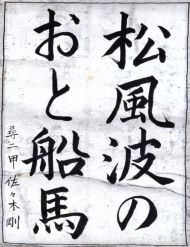 松風波の
おと船馬
尋二甲 佐々木剛